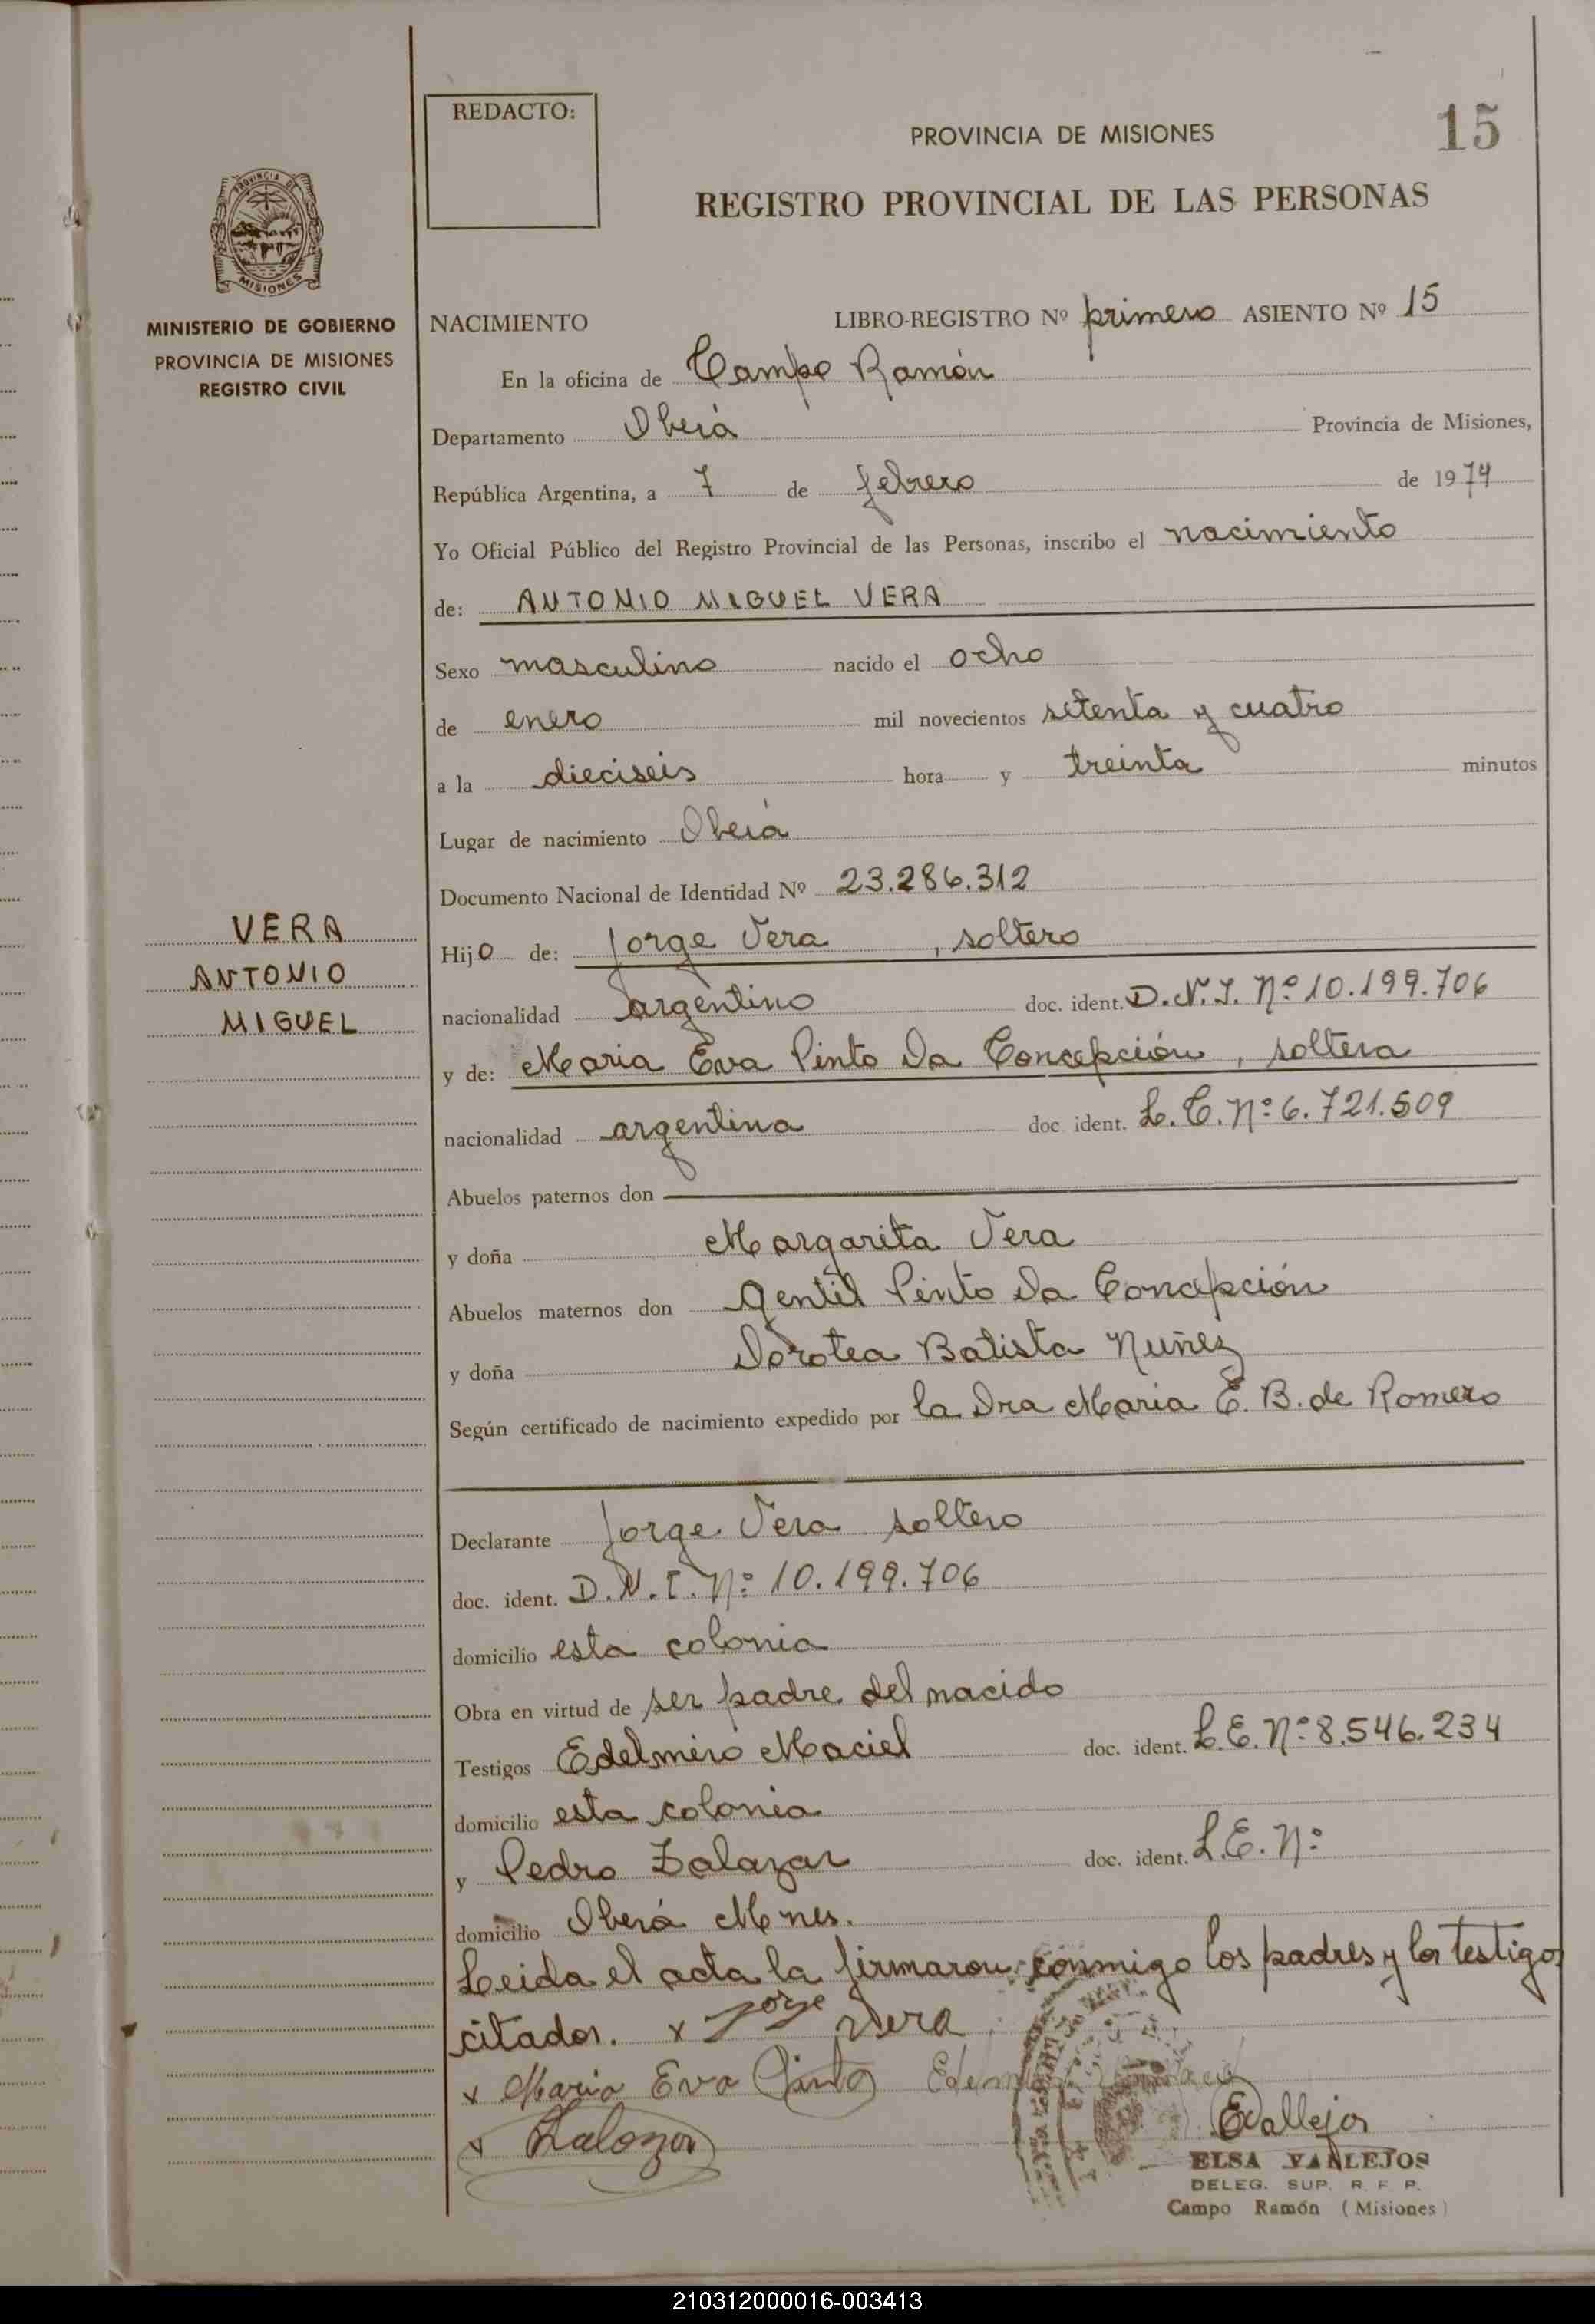 REDACTO:
PROVINCIA DE MISIONES
15
REGISTRO PROVINCIAL DE LAS PERSONAS
PROVINCIA DE
MISIONES
MINISTERIO DE GOBIERNO
PROVINCIA DE MISIONES
REGISTRO CIVIL
NACIMIENTO LIBRO-REGISTRO Nº primero ASIENTO Nº 15
En la oficina de Campo Ramón
Departamento Oberá Provincia de Misiones,
República Argentina, a 7 de febrero de 1974
Yo Oficial Público del Registro Provincial de las Personas, inscribo el nacimiento
de: ANTONIO MIGUEL VERA
Sexo masculino nacido el ocho
de enero mil novecientos setenta y cuatro
a la dieciseis hora y treinta minutos
Lugar de nacimiento Oberá
Documento Nacional de Identidad Nº 23.286.312
VERA
ANTONIO
MIGUEL
Hijo de: Jorge Vera, soltero
nacionalidad argentino doc. ident. D.N.I. Nº 10.199.706
y de: Maria Eva Pinto Da Concepción, soltera
nacionalidad argentina doc ident. L.C. Nº 6.721.509
Abuelos paternos don
y doña Margarita Vera
Abuelos maternos don Gentil Pinto Da Concepción
y doña Dorotea Batista Nuñez
Según certificado de nacimiento expedido por la Dra Maria E. B. de Romero
Declarante Jorge Vera soltero
doc. ident. D.N.I. Nº 10.199.706
domicilio esta colonia
Obra en virtud de ser padre del nacido
Testigos Edelmiro Maciel doc. ident. L.E. Nº 8.546.234
domicilio esta colonia
y Pedro Zalazar doc. ident. L.E. Nº
domicilio Oberá Mnes.
Leida el acta la firmaron conmigo los padres y los testigos
citados. x Jorge Vera
x Maria Eva Pinto
x Zalazar
EVallejos
ELSA VALLEJOS
DELEG. SUP. R. F. P.
Campo Ramón (Misiones)
210312000016-003413